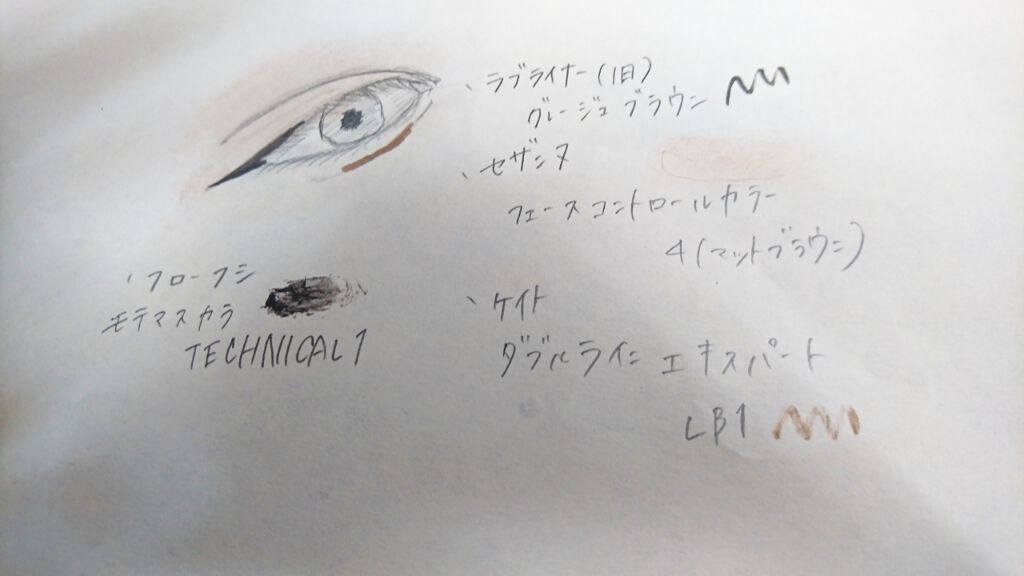 、ラブライナー(旧)
グレージュブラウン
、セザンヌ
フェースコントロールカラー
4(マットブラウン)
、フローフシ
モテマスカラ
TECHNICAL1
、ケイト
ダブルラインエキスパート
LB1